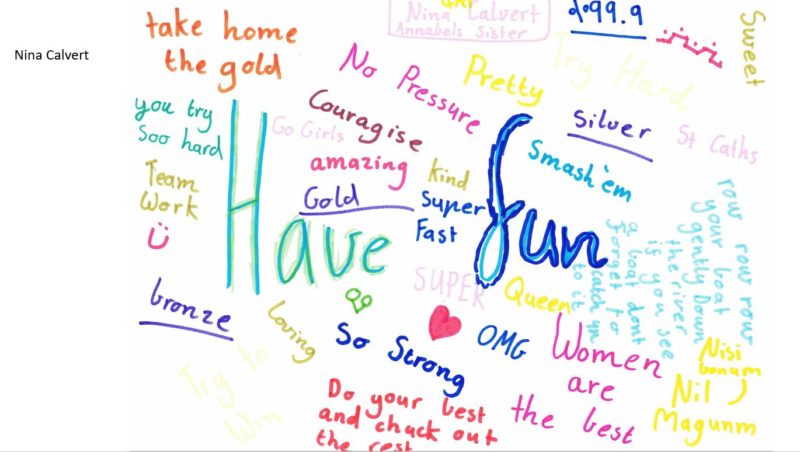 Nina Calvert
take home
the gold
Nina Calvert
Annabels Sister
Sweet
No Pressure
Pretty
Try Hard
you try
Soo hard
Go Girls
Couragise
Silver
St Caths
Team
Work
amazing
Gold
kind
Super
Fast
Smash'em
Have
fun
row row row
your boat
gently Down
the river
is you see
a boat dont
forget to
bronze
SUPER
Queen
loving
So Strong
OMG
Women
are
the best
Try to
Win
Do your best
and chuck out
the rest
Nisi
bonum
Nil
Magunm